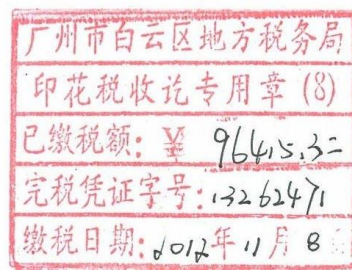 广州市白云区地方税务局
印花税收讫专用章(8)
已缴税额:¥
完税凭证字号:13262471
缴税日期:2012年11月8